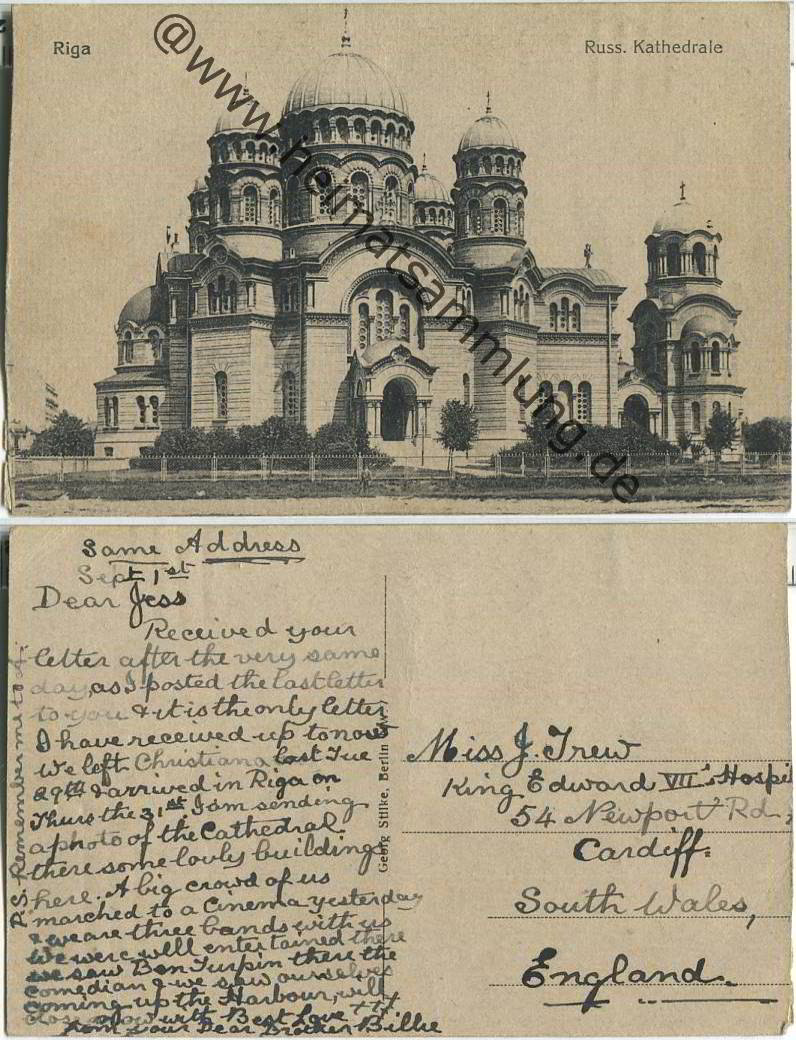 Riga
Russ. Kathedrale
@www.heimatsammlung.de
Same Address
Sept 1st
Dear Jess
Received your
letter after the very same
day, as I posted the last letter
to you & it is the only letter
I have received up to now
We left Christiana last Tue
29th & arrived in Riga on
Thurs the 31st, I am sending
a photo of the Cathedral.
there some lovly buildings
here. A big crowd of us
marched to a Cinema yesterday
& we are three bands with us
We were well entertained there
we saw Ben Turpin there the
comedian & we saw ourselves
coming up the Harbour, will
close now with Best Love
from your Dear Brother Billie
P.S. Remember me to
Georg Stilke, Berlin
Miss J. Trew
King Edward VII's Hospi
54 Newport Rd,
Cardiff.
South Wales,
England.